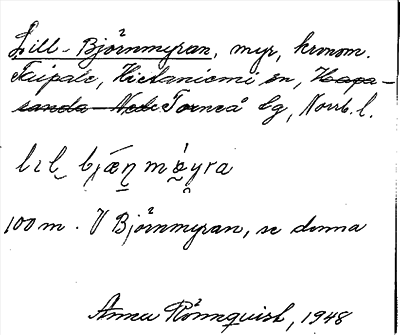 Lill-Björnmyran, myr, kronom.
Taipale, Hietaniemi sn, Hapa-
randa Nedertorneå lg, Norrb. l.
lɪl bjæn møyra
100 m. V Björnmyran, se denna
Anna Rönnquist, 1948